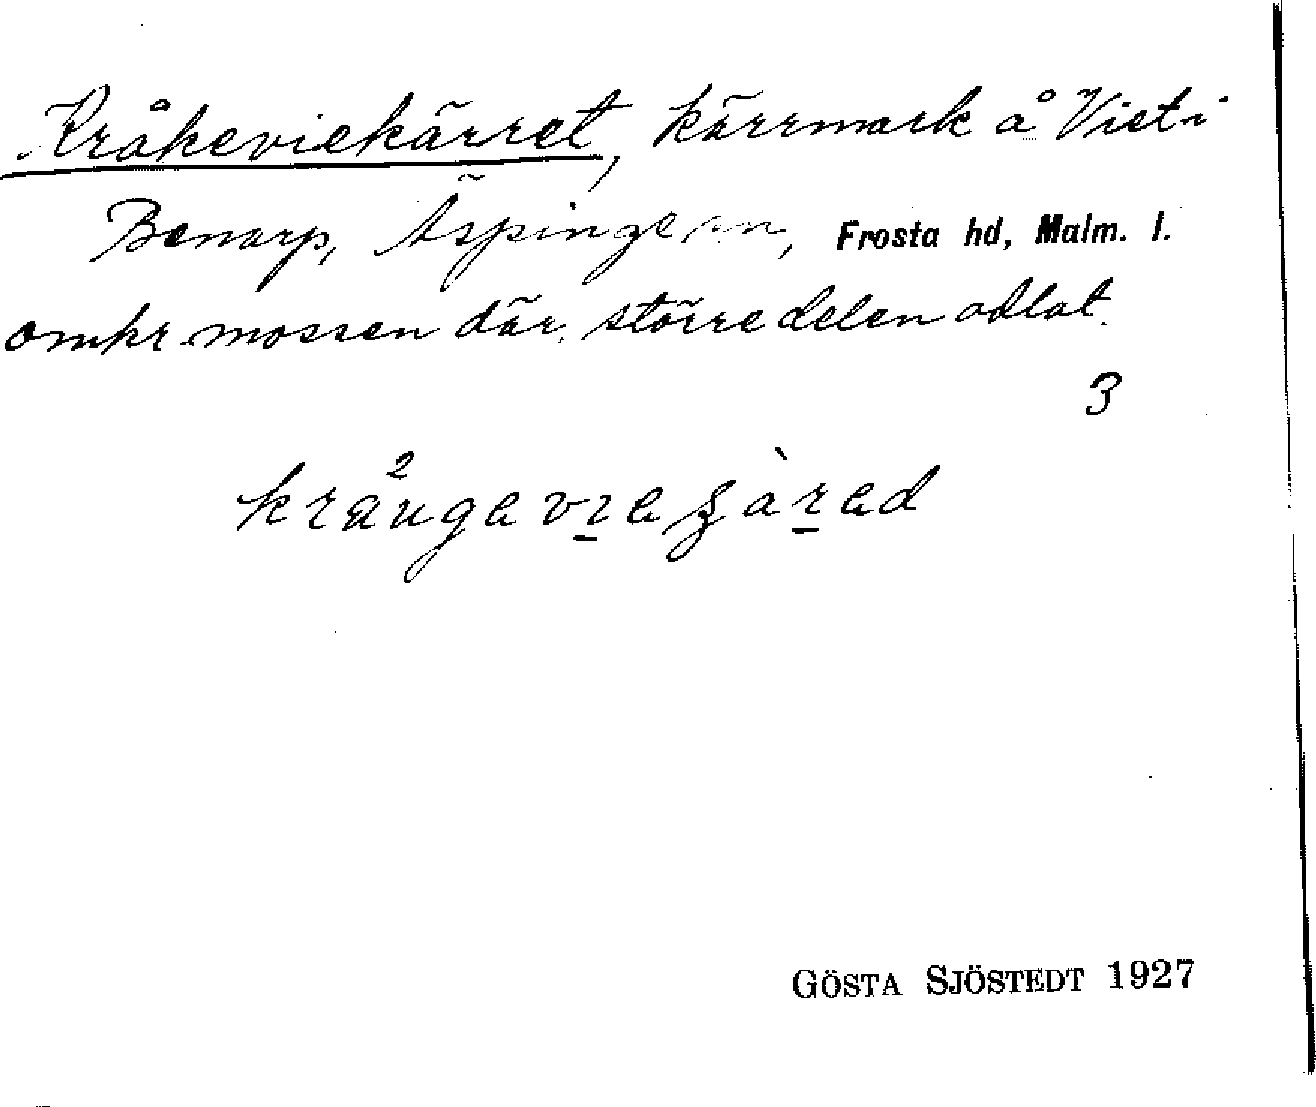 Kråkeviekärret, kärrmark å Viet i
Benarp, Äspinge sn, Frosta hd, Malm. l.
omkr mossen där, större delen odlat.
3
GÖSTA SJÖSTEDT 1927